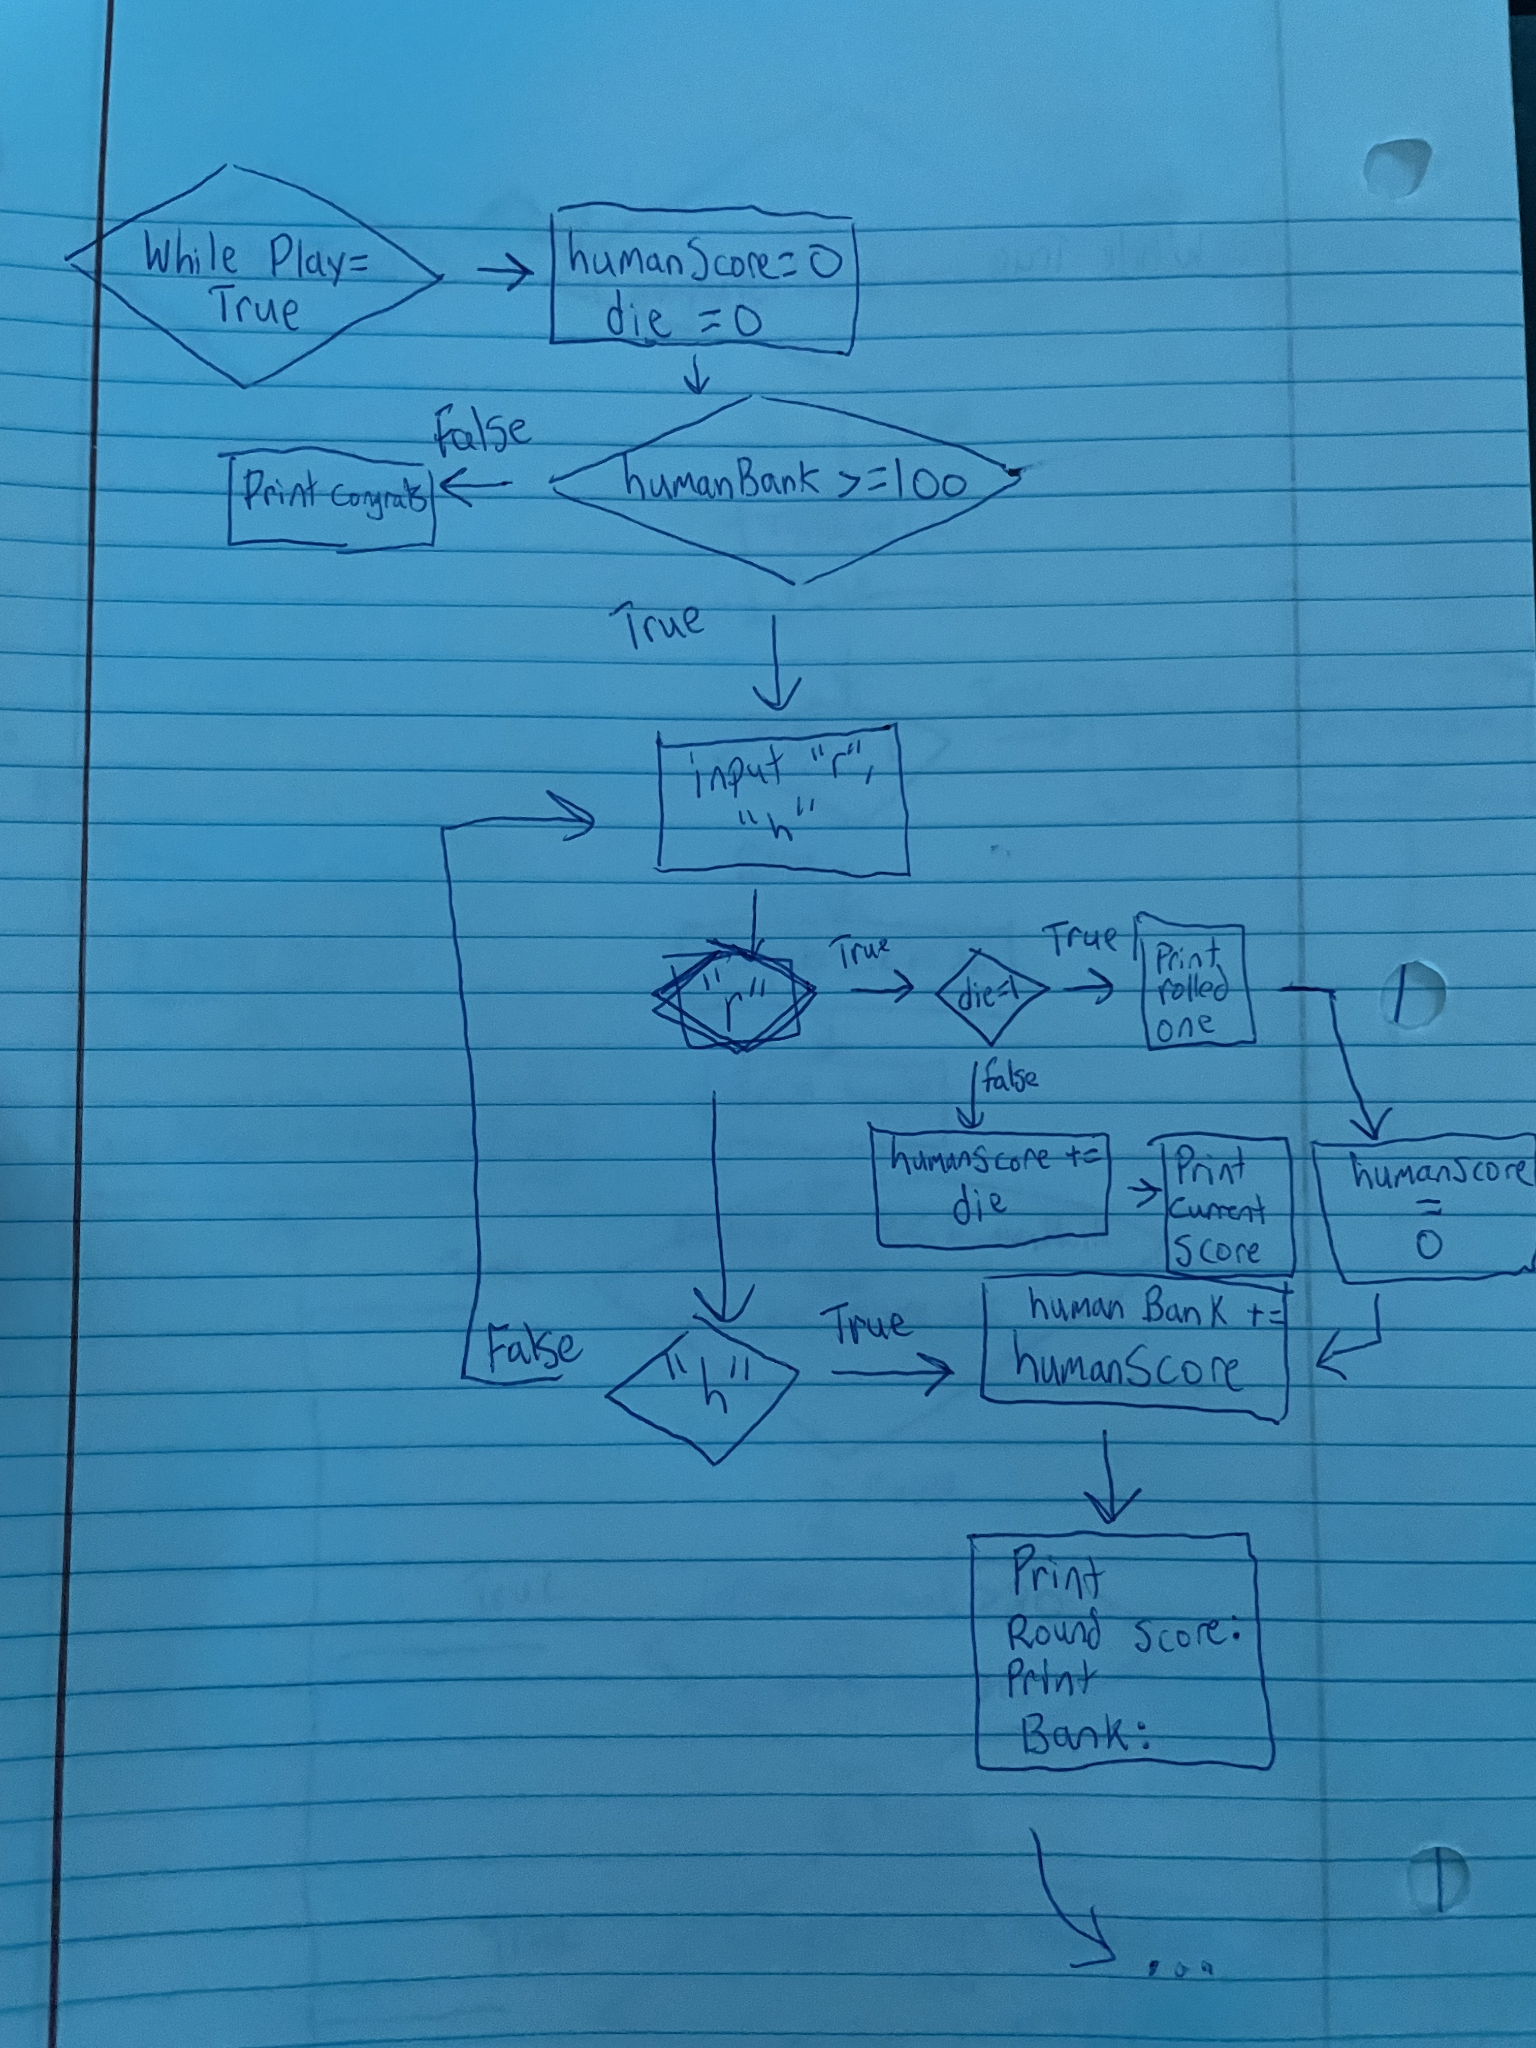 While Play=
True
humanScore=0
die =0
False
Print congrats
humanBank >=100
True
input "r",
"h"
"r"
True
die=1
True
Print
rolled
one
false
humanscore +=
die
Print
current
score
humanscore
=
0
False
"h"
True
human Bank +=
humanScore
Print
Round score:
Print
Bank:
...